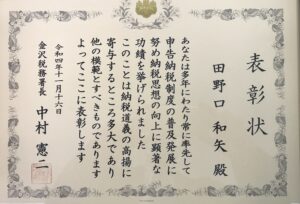 表彰状
田野口 和矢 殿
あなたは多年にわたり常に率先して
申告納税制度の普及発展に
努め納税思想の向上に顕著な
功績を挙げられました
このことは納税道義の高揚に
寄与するところ多大であり
他の模範とすべきものであります
よってここに表彰します
令和四年十一月十六日
金沢税務署長 中村 憲二